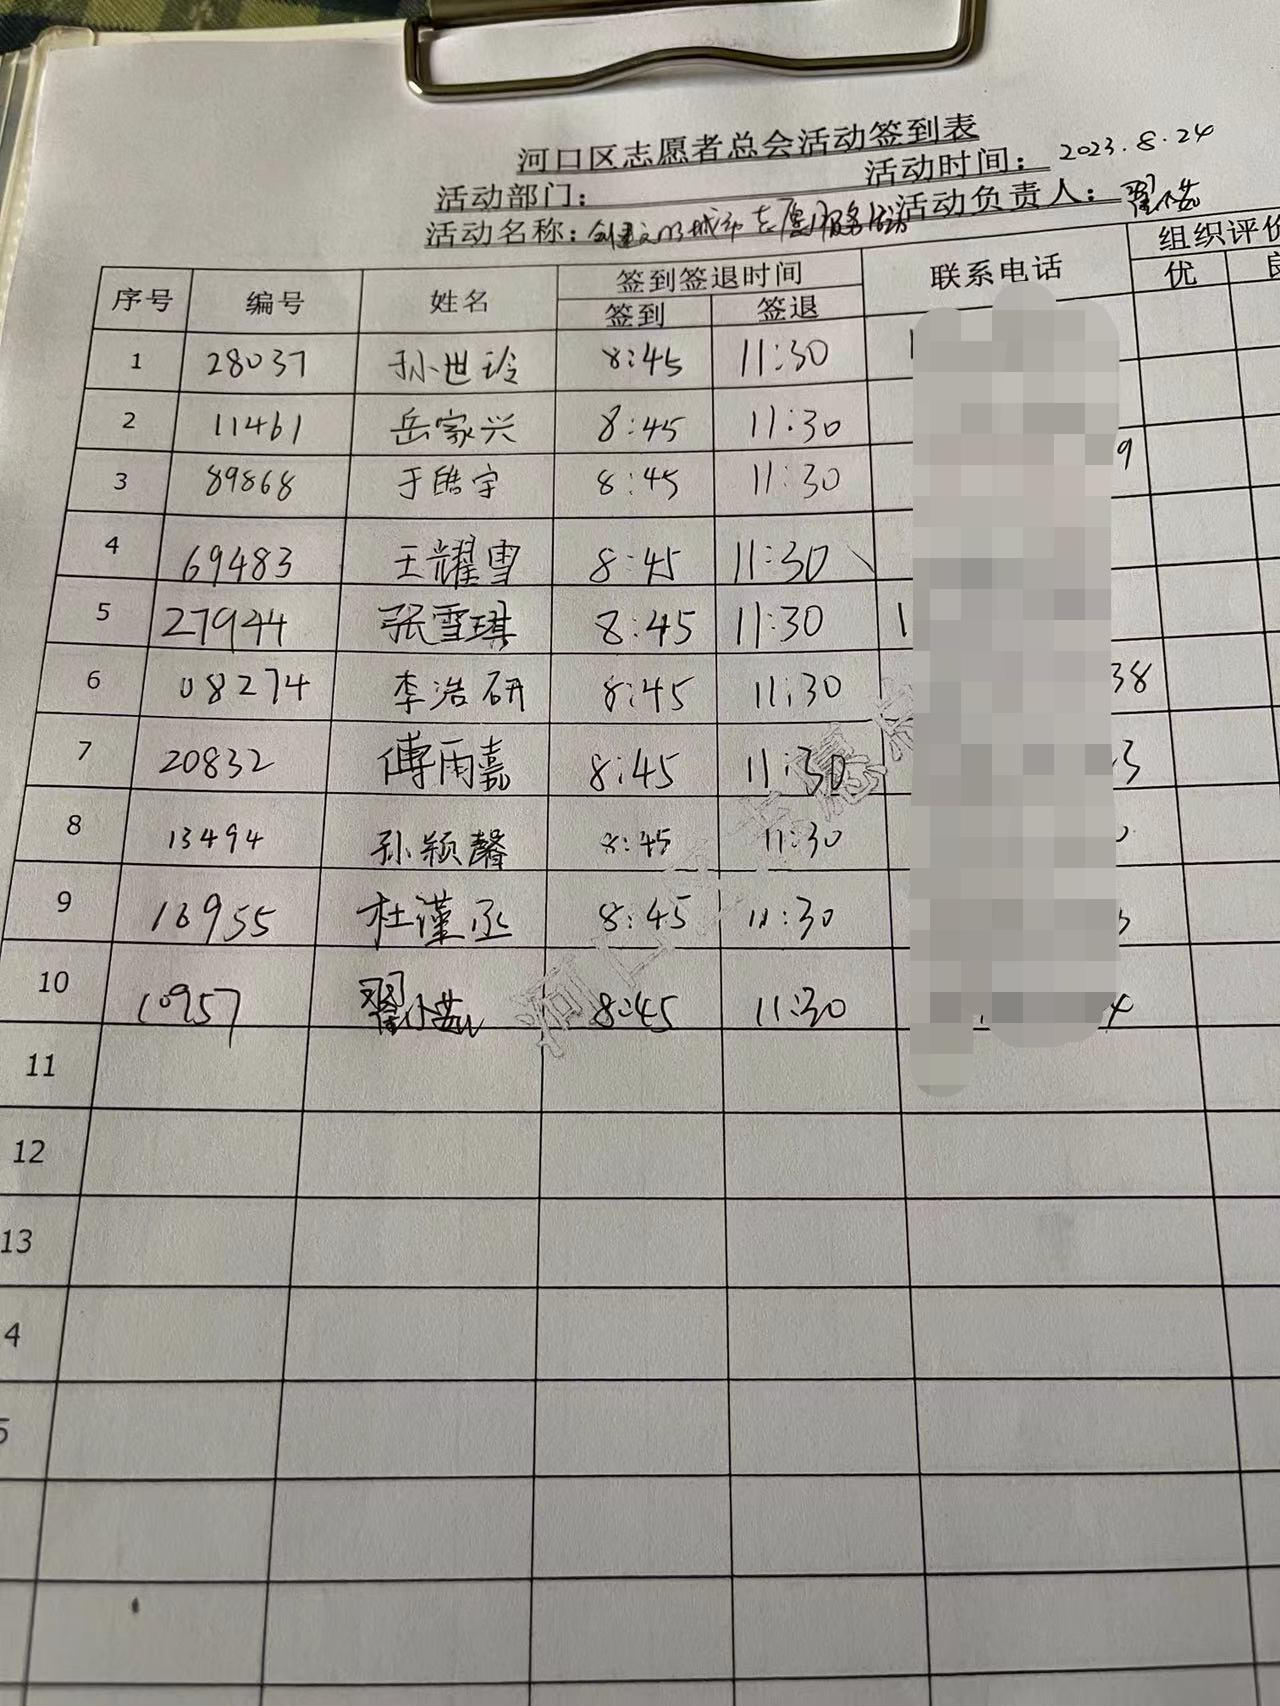 河口区志愿者总会活动签到表
活动部门： 活动时间：2023.8.24
活动名称：创建文明城市志愿服务活动 活动负责人：翟小茹
序号 编号 姓名 签到签退时间 联系电话 组织评价
签到 签退 优 良
1 28037 孙世玲 8:45 11:30
2 11461 岳家兴 8:45 11:30
3 89868 于皓宇 8:45 11:30 9
4 69483 王耀雪 8:45 11:30
5 27944 张雪琪 8:45 11:30 1
6 08274 李浩研 8:45 11:30 38
7 20832 傅雨嘉 8:45 11:30 3
8 13494 孙颖馨 8:45 11:30
9 16955 杜谨丞 8:45 11:30
10 10957 翟小茹 8:45 11:30 4
11
12
13
4
5
河口区志愿